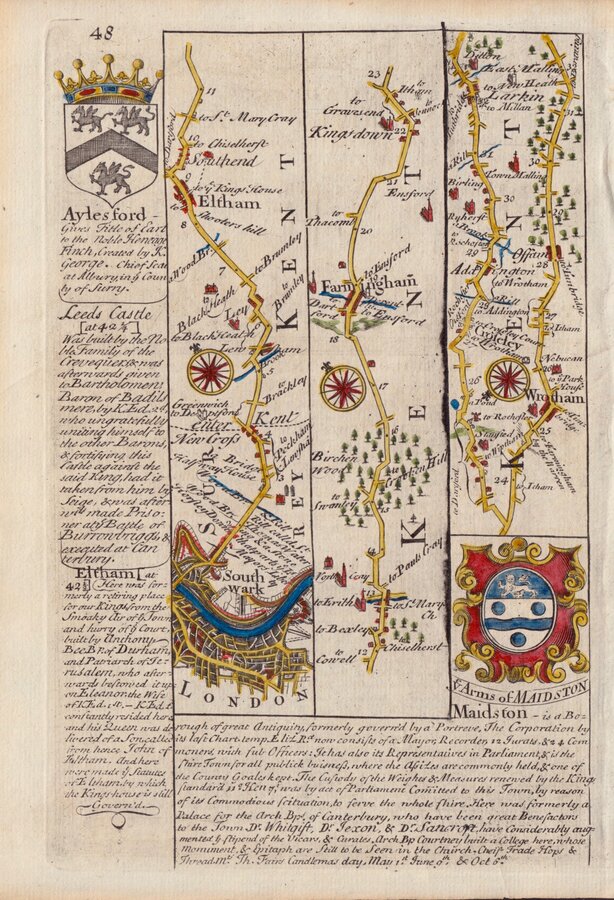 48
Aylesford -
Gives Title of Earl
to the Noble Heneage
Finch, Created by K.
George. Chief Seat
at Albury, in ye Coun
ty of Surry.
Leeds Castle
[at 42 ¼]
Was built by the No
ble Family of the
Crevequer's & was
afterwards given
to Bartholomew
Baron of Badils
mere, by K. Ed. 2d.
who ungratefully
uniting himself to
the other Barons,
& fortifying this
Castle against the
said King, had it
taken from him by
Seige, & was after
wds. made Priso
ner at ye Battle of
Burrowbriggs &
executed at Can
terbury.
Eltham [at
42 ½] Here was for
merly a retiring place
for our Kings from the
Smoaky Air of ye Town
and hurry of ye Court,
built by Anthony
Bec Bp. of Durham
and Patriarch of Je
rusalem, who after
wards bestowed it up
on Eleanor the Wife
of K. Ed. 1st. K. Ed. 2
constantly resided here
and his Queen was de
livered of a Son called
from hence John of
Eltham. And here
were made ye Statutes
of Eltham by which
the Kings house is still
Govern'd.
11
to St. Mary Cray
10
to Chiselherst
to Dartford
Southend
9
to ye Kings House
Eltham
8
Shooters hill
a Wood Br.
7
to Bromley
to Black Heath
Ley
to Bromley
to Black Heath
5
to Brackley
Greenwich
to Deptford
Enter Kent
New Cross
4
Half way House
SURREY
KENT
South
wark
LONDON
23
to Itham
to Gravesend
22
Kingsdown
to Ensford
to Thacom
20
to Ensford
Farmingham
to Dart
ford
to Ensford
18
17
Birchen
Wood
to Swanley
14
13
to Pauls Cray
to Erith
to St. Mary
Ch.
to Bexley
Chiselherst
12
to Cowell
KENT
Ditton
East Malling
to New Heath
Larkin
to Millan
31
30
Town Malling
Birling
30
Ryherst
to Rochester
29
Offam
28
Addington
to Wrotham
to Tunbridge
to Addington
27
to Itham
26
Nebucan
to ye Park
House
a Pond
to Rochester
Wrotham
25
24
to Itham
to Dartford
KENT
ye Arms of MAIDSTON
Maidston - is a Bo-
rough of great Antiquity, formerly govern'd by a Portreve, The Corporation by
its last Chart. temp. Eliz. Rae. now consists of a Mayor, Recorder, 12 Jurats, & 24 Com
moners, with sub Officers: It has also its Representatives in Parliament, & is the
Shire Town for all publick business, where the Assizes are commonly held, & one of
the County Goales kept. The Custody of the Weights & Measures renewed by the King's
Standard is Heny. 7. was by act of Parliament Comitted to this Town, by reason
of its Commodious scituation, to serve the whole shire. Here was formerly a
Palace for the Arch Bps. of Canterbury, who have been great Benefactors
to the Town Dr. Whitgift, Dr. Jexon, & Dr. Sancroft, have Considerably aug
mented ye stipend of the Vicars, & Curates, Arch Bp Courtney built a College here, whose
Moniment, & Epitaph are still to be Seen in the Church. Cheif Trade Hops &
Thread. Mt. Th. Fairs Candlemas day, May 1st. June 9th. & Oct 6th.